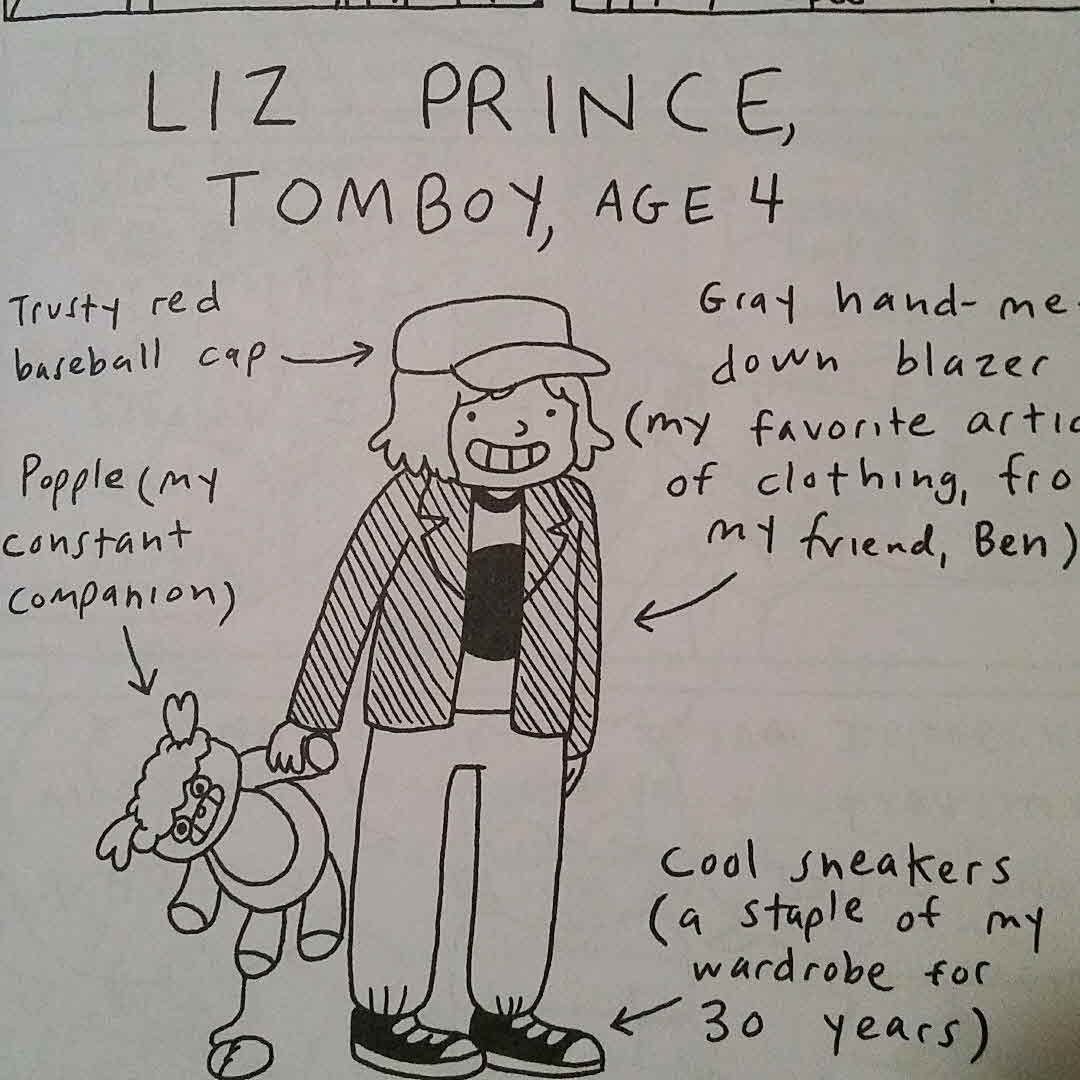 LIZ PRINCE,
TOMBOY, AGE 4
Trusty red
baseball cap
Gray hand-me-
down blazer
(my favorite artic
of clothing, fro
my friend, Ben)
Popple (my
constant
companion)
Cool sneakers
(a staple of my
wardrobe for
30 years)